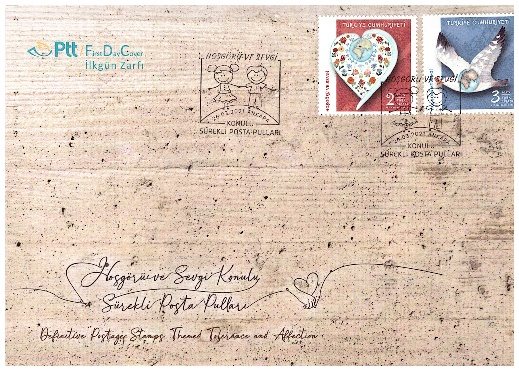 Ptt
First Day Cover
İlkgün Zarfı
HOŞGÖRÜ VE SEVGİ
ANKARA
KONULU
SÜREKLİ POSTA PULLARI
TÜRKİYE CUMHURİYETİ
2
TÜRKİYE CUMHURİYETİ
3
HOŞGÖRÜ VE SEVGİ
ANKARA
KONULU
SÜREKLİ POSTA PULLARI
Hoşgörü ve Sevgi Konulu
Sürekli Posta Pulları
Definitive Postage Stamps Themed Tolerance and Affection